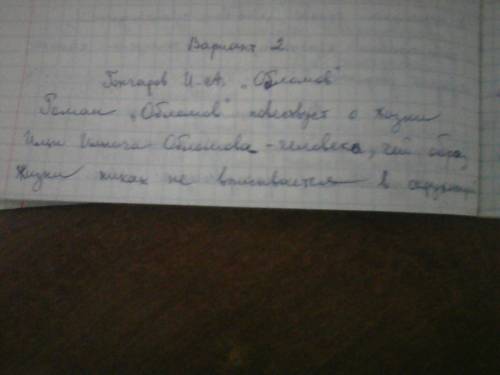 Вариант 2.
Гончаров И.А. „Обломов"
Роман „Обломов" повествует о жизни
Ильи Ильича Обломова - человека, чей образ
жизни никак не вписывается в окружающ